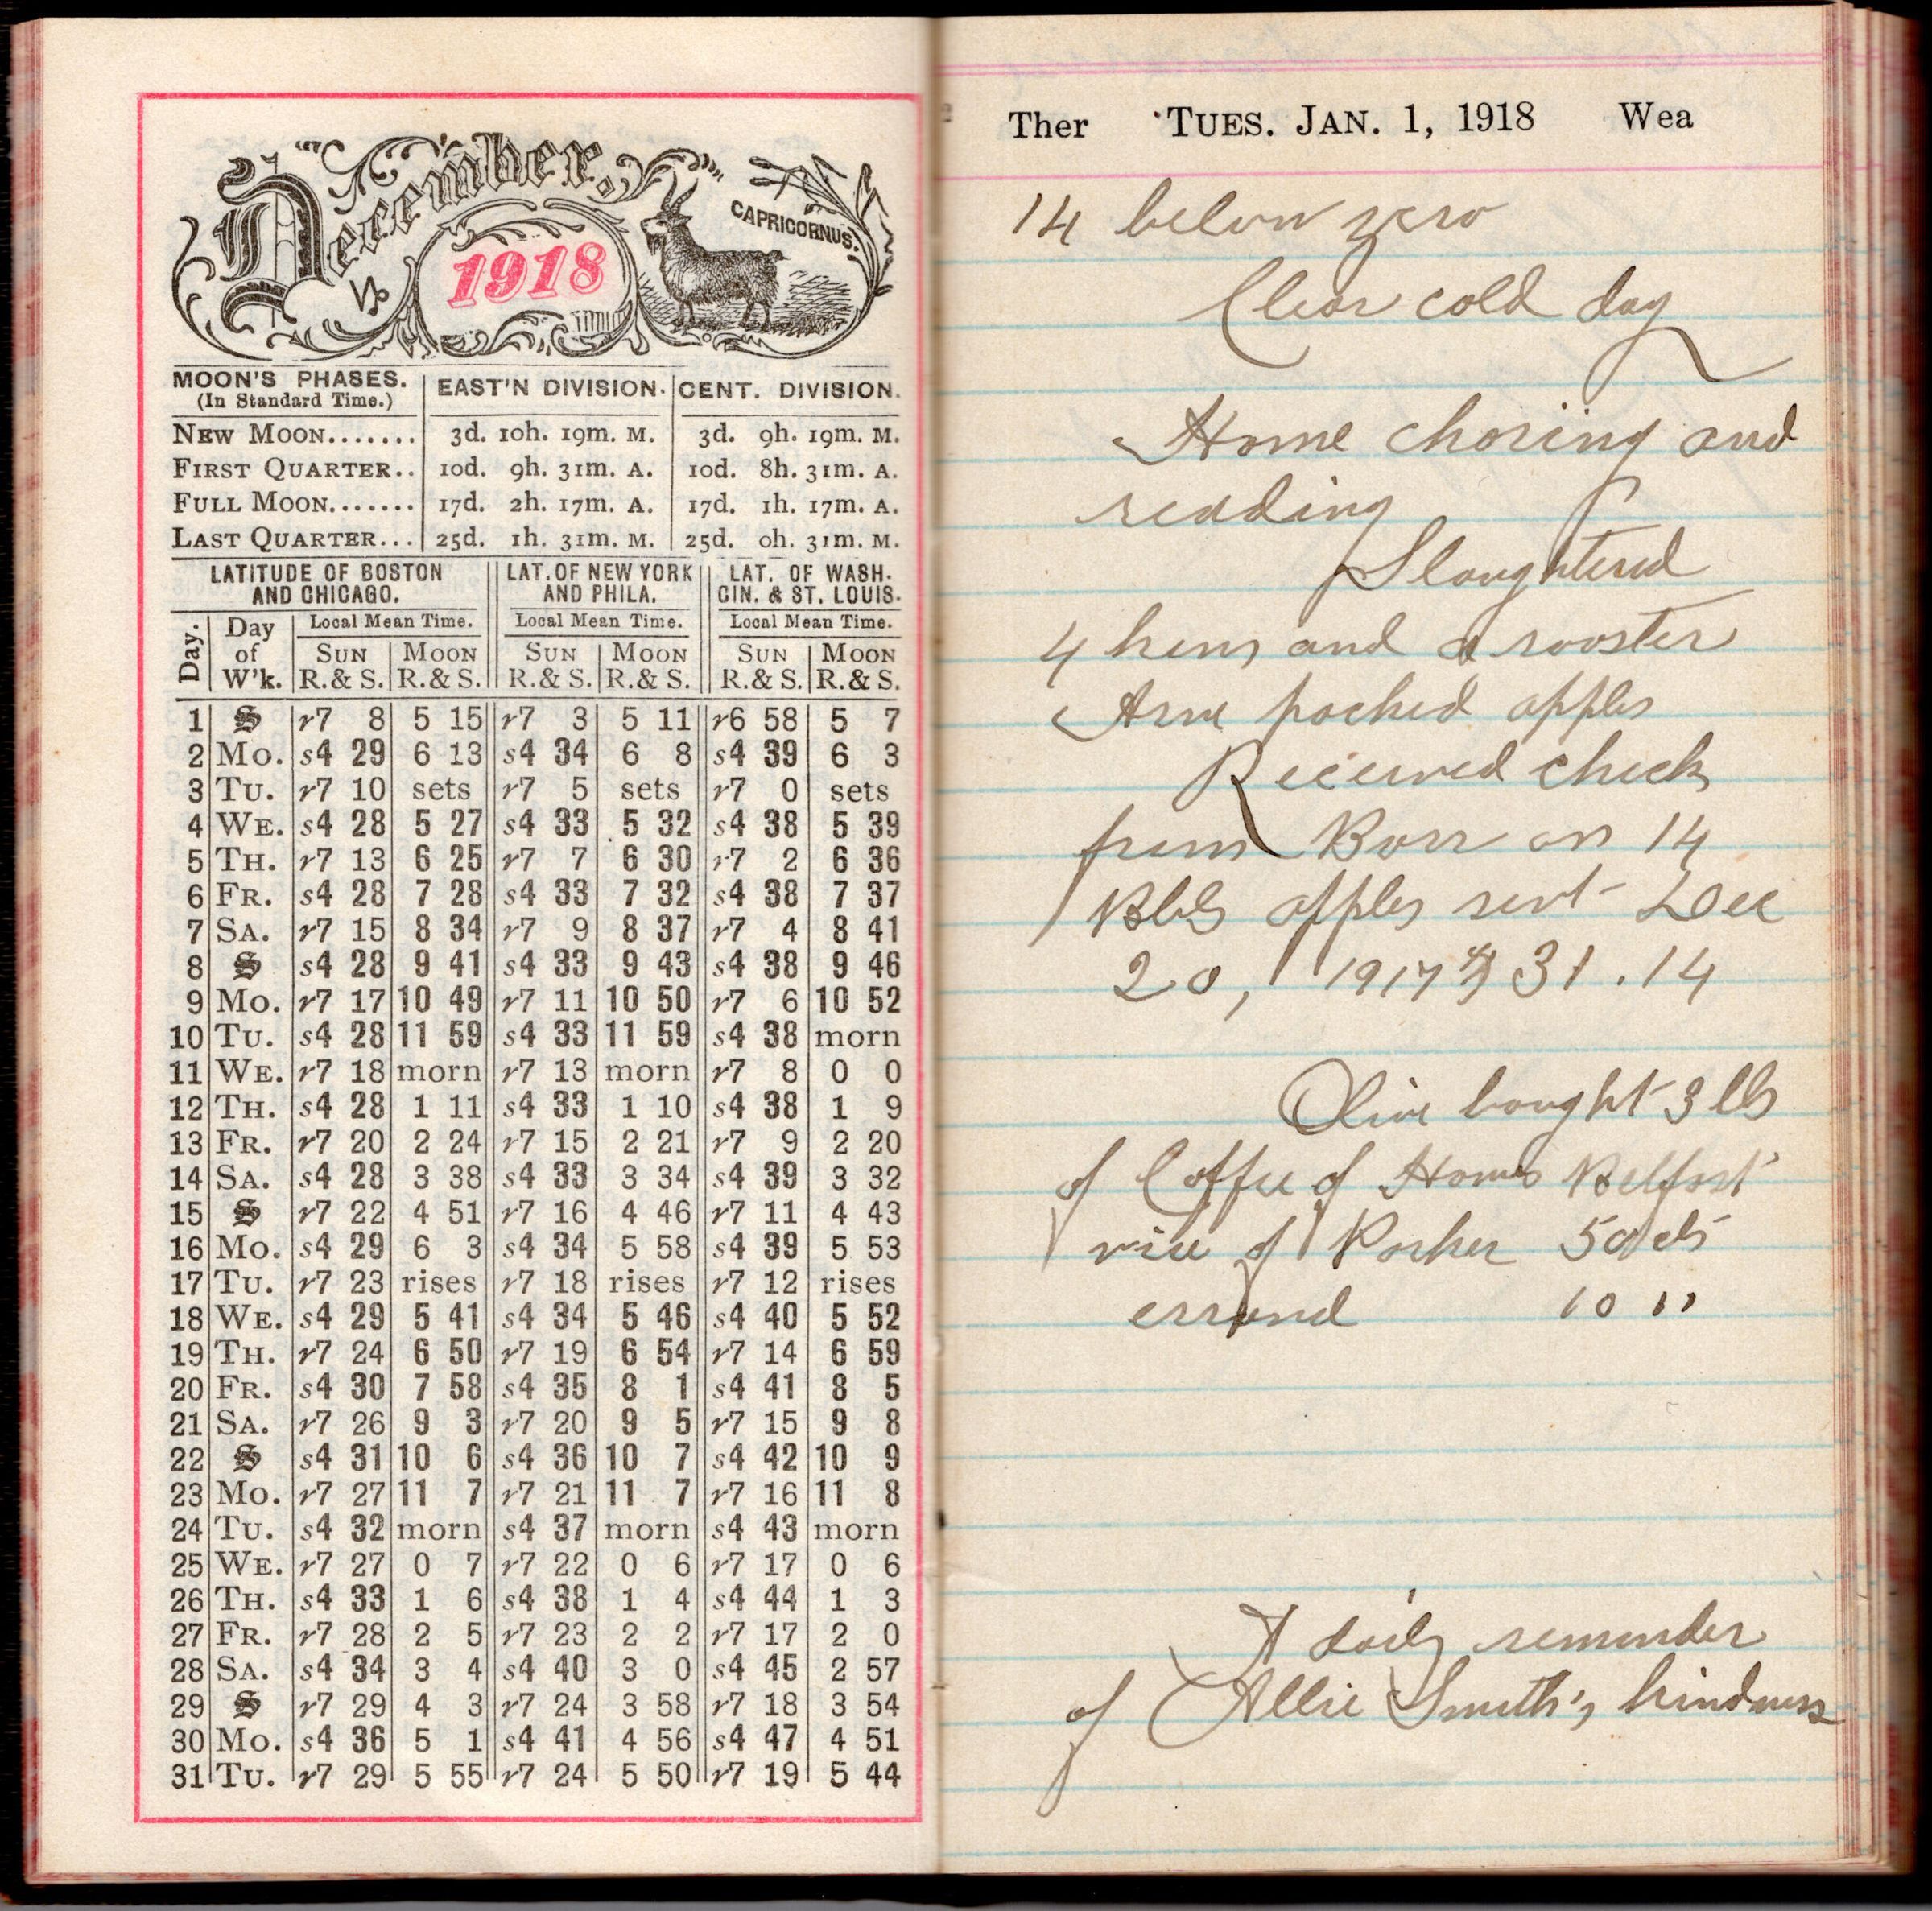 December,
1918
CAPRICORNUS.
MOON'S PHASES. | EAST'N DIVISION. | CENT. DIVISION.
(In Standard Time.)
NEW MOON....... 3d. 10h. 19m. M. 3d. 9h. 19m. M.
FIRST QUARTER.. 10d. 9h. 31m. A. 10d. 8h. 31m. A.
FULL MOON....... 17d. 2h. 17m. A. 17d. 1h. 17m. A.
LAST QUARTER... 25d. 1h. 31m. M. 25d. 0h. 31m. M.
LATITUDE OF BOSTON LAT. OF NEW YORK LAT. OF WASH.
AND CHICAGO. AND PHILA. CIN. & ST. LOUIS.
Day. Day of W'k. Local Mean Time. Local Mean Time. Local Mean Time.
SUN MOON SUN MOON SUN MOON
R. & S. R. & S. R. & S. R. & S. R. & S. R. & S.
1 S r7 8 5 15 r7 3 5 11 r6 58 5 7
2 MO. s4 29 6 13 s4 34 6 8 s4 39 6 3
3 TU. r7 10 sets r7 5 sets r7 0 sets
4 WE. s4 28 5 27 s4 33 5 32 s4 38 5 39
5 TH. r7 13 6 25 r7 7 6 30 r7 2 6 36
6 FR. s4 28 7 28 s4 33 7 32 s4 38 7 37
7 SA. r7 15 8 34 r7 9 8 37 r7 4 8 41
8 S s4 28 9 41 s4 33 9 43 s4 38 9 46
9 MO. r7 17 10 49 r7 11 10 50 r7 6 10 52
10 TU. s4 28 11 59 s4 33 11 59 s4 38 morn
11 WE. r7 18 morn r7 13 morn r7 8 0 0
12 TH. s4 28 1 11 s4 33 1 10 s4 38 1 9
13 FR. r7 20 2 24 r7 15 2 21 r7 9 2 20
14 SA. s4 28 3 38 s4 33 3 34 s4 39 3 32
15 S r7 22 4 51 r7 16 4 46 r7 11 4 43
16 MO. s4 29 6 3 s4 34 5 58 s4 39 5 53
17 TU. r7 23 rises r7 18 rises r7 12 rises
18 WE. s4 29 5 41 s4 34 5 46 s4 40 5 52
19 TH. r7 24 6 50 r7 19 6 54 r7 14 6 59
20 FR. s4 30 7 58 s4 35 8 1 s4 41 8 5
21 SA. r7 26 9 3 r7 20 9 5 r7 15 9 8
22 S s4 31 10 6 s4 36 10 7 s4 42 10 9
23 MO. r7 27 11 7 r7 21 11 7 r7 16 11 8
24 TU. s4 32 morn s4 37 morn s4 43 morn
25 WE. r7 27 0 7 r7 22 0 6 r7 17 0 6
26 TH. s4 33 1 6 s4 38 1 4 s4 44 1 3
27 FR. r7 28 2 5 r7 23 2 2 r7 17 2 0
28 SA. s4 34 3 4 s4 40 3 0 s4 45 2 57
29 S r7 29 4 3 r7 24 3 58 r7 18 3 54
30 MO. s4 36 5 1 s4 41 4 56 s4 47 4 51
31 TU. r7 29 5 55 r7 24 5 50 r7 19 5 44
Ther TUES. JAN. 1, 1918 Wea
14 below zero
Clear cold day
Home choring and
reading
Slaughtered
4 hens and a rooster
packed apples
Received check
from Burr on 14
Bbls apples sent Dec
20, 1917 $31.14
Olive bought 3 lbs
of Coffee of Belfast
of Parker 50 cts
errand 10 "
A daily reminder
of Allie Smith's kindness